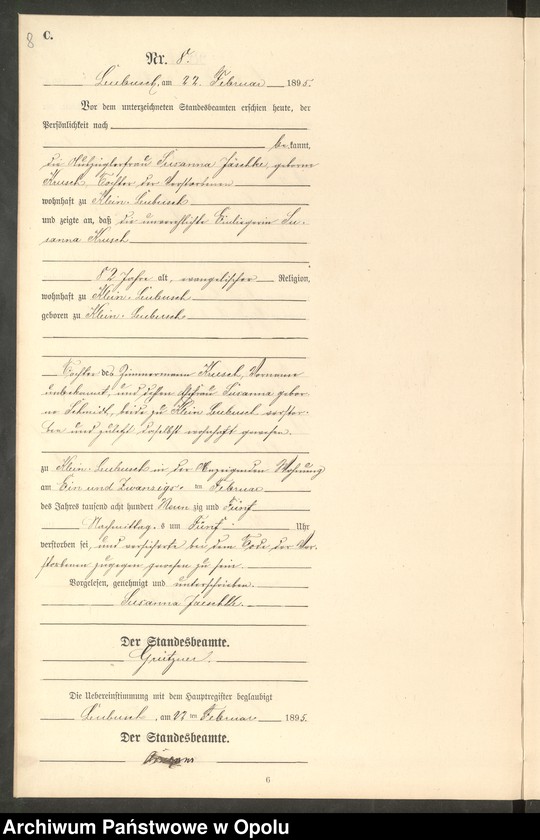 8
C.
Nr. 8.
Leubusch, am 22. Februar 1895.
Vor dem unterzeichneten Standesbeamten erschien heute, der
Persönlichkeit nach
bekannt,
die Auszüglerfrau Susanna Jäschke, geborne
Kusch, Tochter der Verstorbenen
wohnhaft zu Klein-Leubusch
und zeigte an, daß die unverehelichte Einliegerin Su-
sanna Kusch
82 Jahre alt, evangelischer Religion,
wohnhaft zu Klein-Leubusch
geboren zu Klein-Leubusch
Tochter des Zimmermann Kusch, Vorname
unbekannt, und dessen Ehefrau Susanna gebor-
ne Schmidt, beide zu Klein Leubusch verstor-
ben und zuletzt daselbst wohnhaft gewesen.
zu Klein-Leubusch in der Anzeigenden Wohnung
am Ein und Zwanzigsten Februar
des Jahres tausend acht hundert Neunzig und Fünf
Nachmittags um Fünf Uhr
verstorben sei, und versicherte bei dem Tode der Ver-
storbenen zugegen gewesen zu sein.
Vorgelesen, genehmigt und unterschrieben.
Susanna Jaeschke
Der Standesbeamte.
Grützner.
Die Uebereinstimmung mit dem Hauptregister beglaubigt
Leubusch, am 22ten Februar 1895.
Der Standesbeamte.
6
Archiwum Państwowe w Opolu